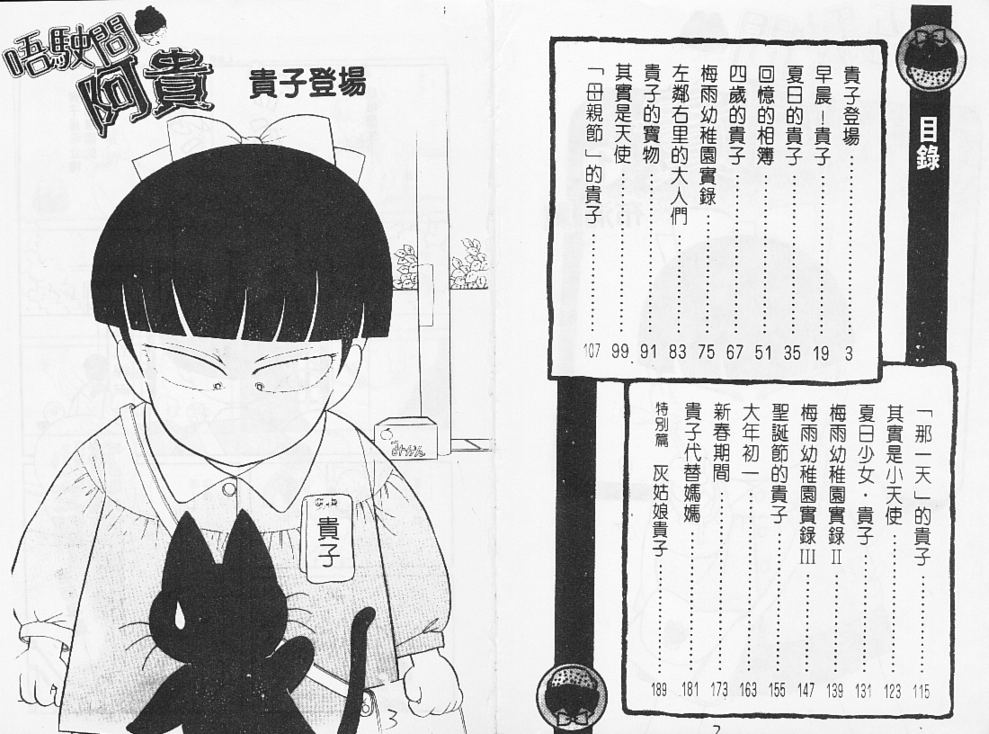 目錄
貴子登場 3
早晨！貴子 19
夏日的貴子 35
回憶的相簿 51
四歲的貴子 67
梅雨幼稚園實錄 75
左鄰右里的大人們 83
貴子的寶物 91
其實是天使 99
「母親節」的貴子 107
「那一天」的貴子 115
其實是小天使 123
夏日少女·貴子 131
梅雨幼稚園實錄 II 139
梅雨幼稚園實錄 III 147
聖誕節的貴子 155
大年初一 163
新春期間 173
貴子代替媽媽 181
特別篇 灰姑娘貴子 189
2
唔駛問
阿貴
貴子登場
貴子
みかん
3